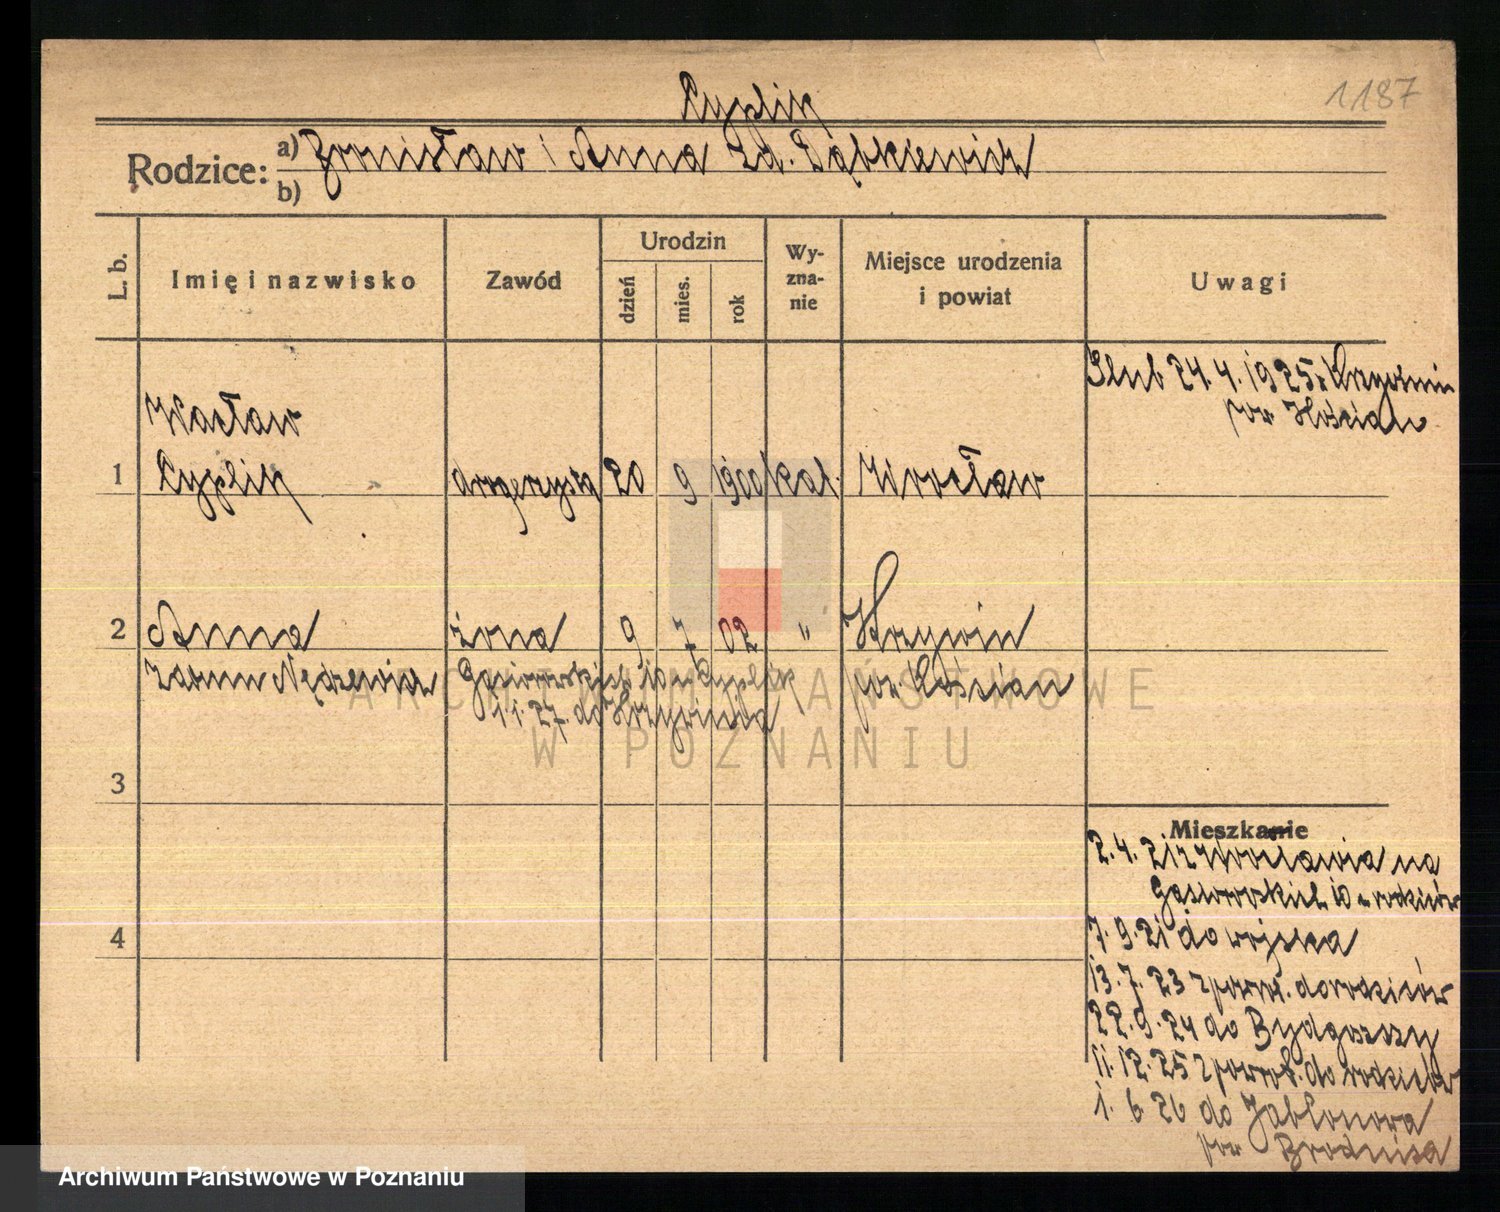 1187
Cyplik
Rodzice: a) Bronisław i Anna zd. Dąbkiewicz
b)
L. b.
Imię i nazwisko
Zawód
Urodzin
dzień
mies.
rok
Wy-
zna-
nie
Miejsce urodzenia
i powiat
Uwagi
Ślub 24. 4. 1925 r. Krzywiniu
pow. Kościan
Wacław
1 Cyplik drogerzysta 20 9 1900 kat. Wrocław
2 Anna żona 9 7 02 " Krzywiń
Gąsiorowskich 10 u Cyplik pow. Kościan
1.1. 27. do Krzywinia
3
4
Mieszkanie
2. 4. 21 z Wrocławia na
Gąsiorowskich 10 u rodziców
7. 9. 21 do wojska
13. 7. 23 z powrot. do rodziców
22. 9. 24 do Bydgoszczy
11. 12. 25 z powrot. do rodziców
1. 6 26 do Jabłonowa
pow Brodnica
ARCHIWUM PAŃSTWOWE
W POZNANIU
Archiwum Państwowe w Poznaniu